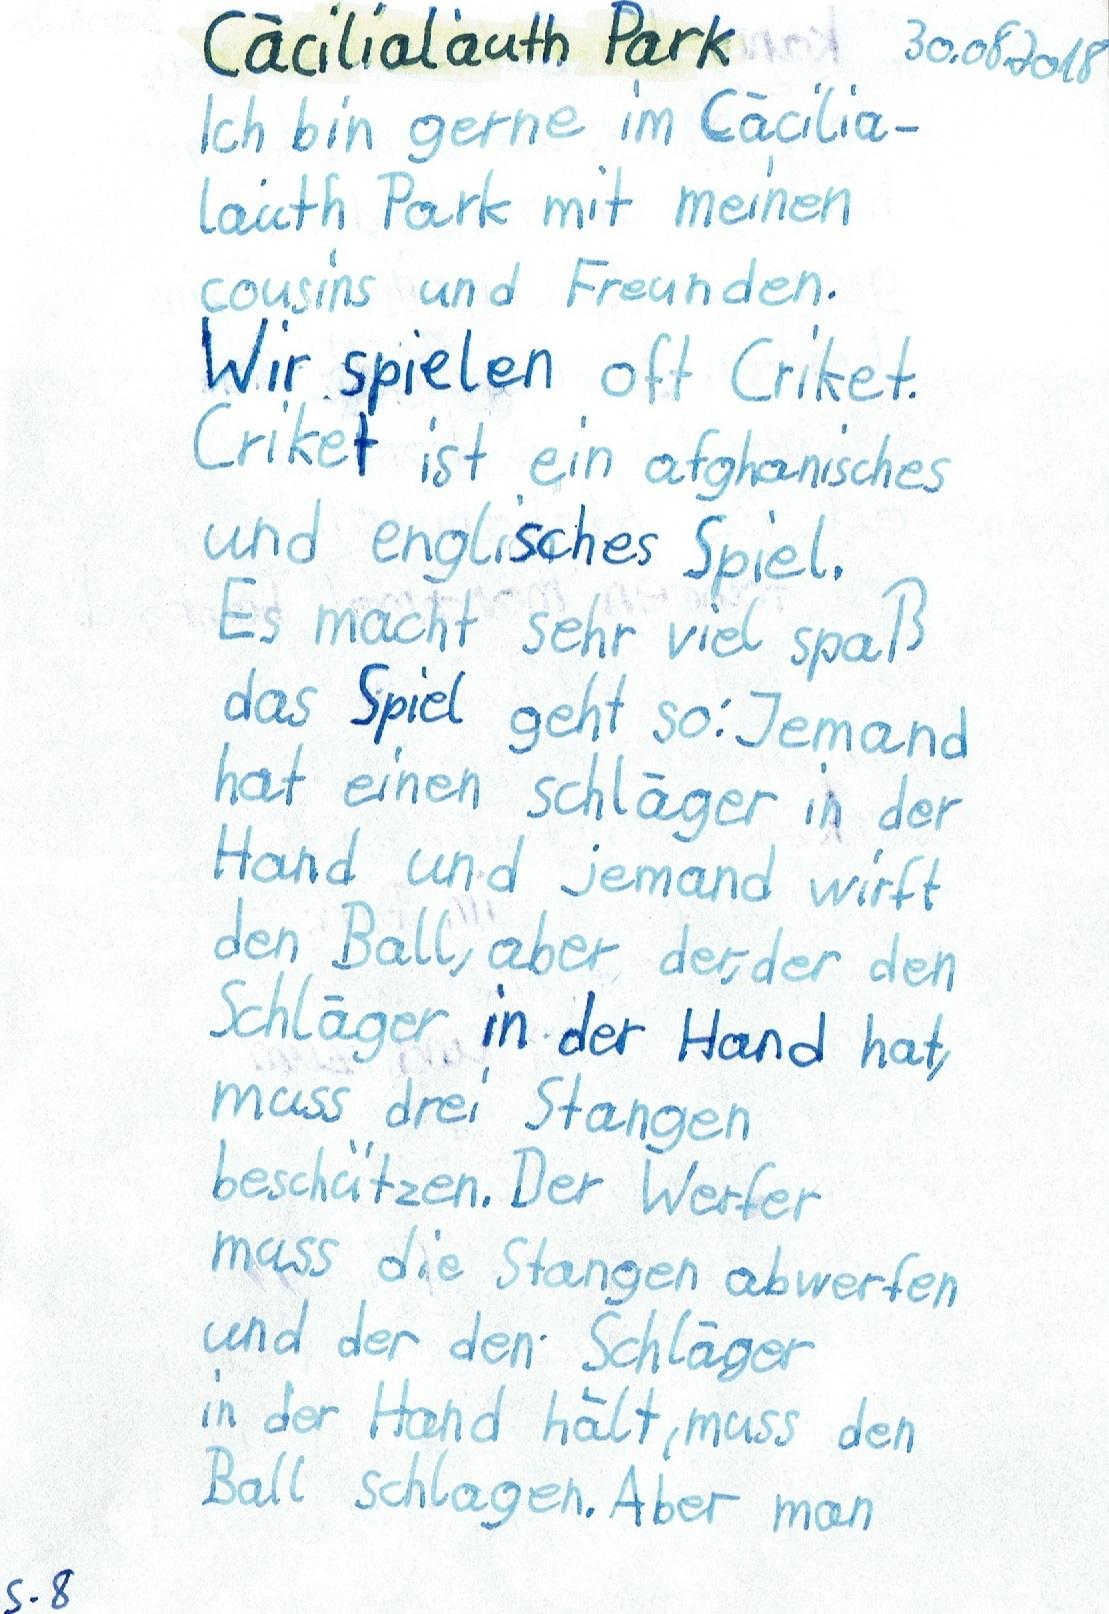 Cācilialauth Park 30.08.2018
Ich bin gerne im Cācilia-
lauth Park mit meinen
cousins und Freunden.
Wir spielen oft Criket.
Criket ist ein afghanisches
und englisches Spiel.
Es macht sehr viel spaß
das Spiel geht so: Jemand
hat einen schlāger in der
Hand und jemand wirft
den Ball, aber der, der den
Schlāger in der Hand hat,
muss drei Stangen
beschützen. Der Werfer
muss die Stangen abwerfen
und der den Schlāger
in der Hand hālt, muss den
Ball schlagen. Aber man
S. 8